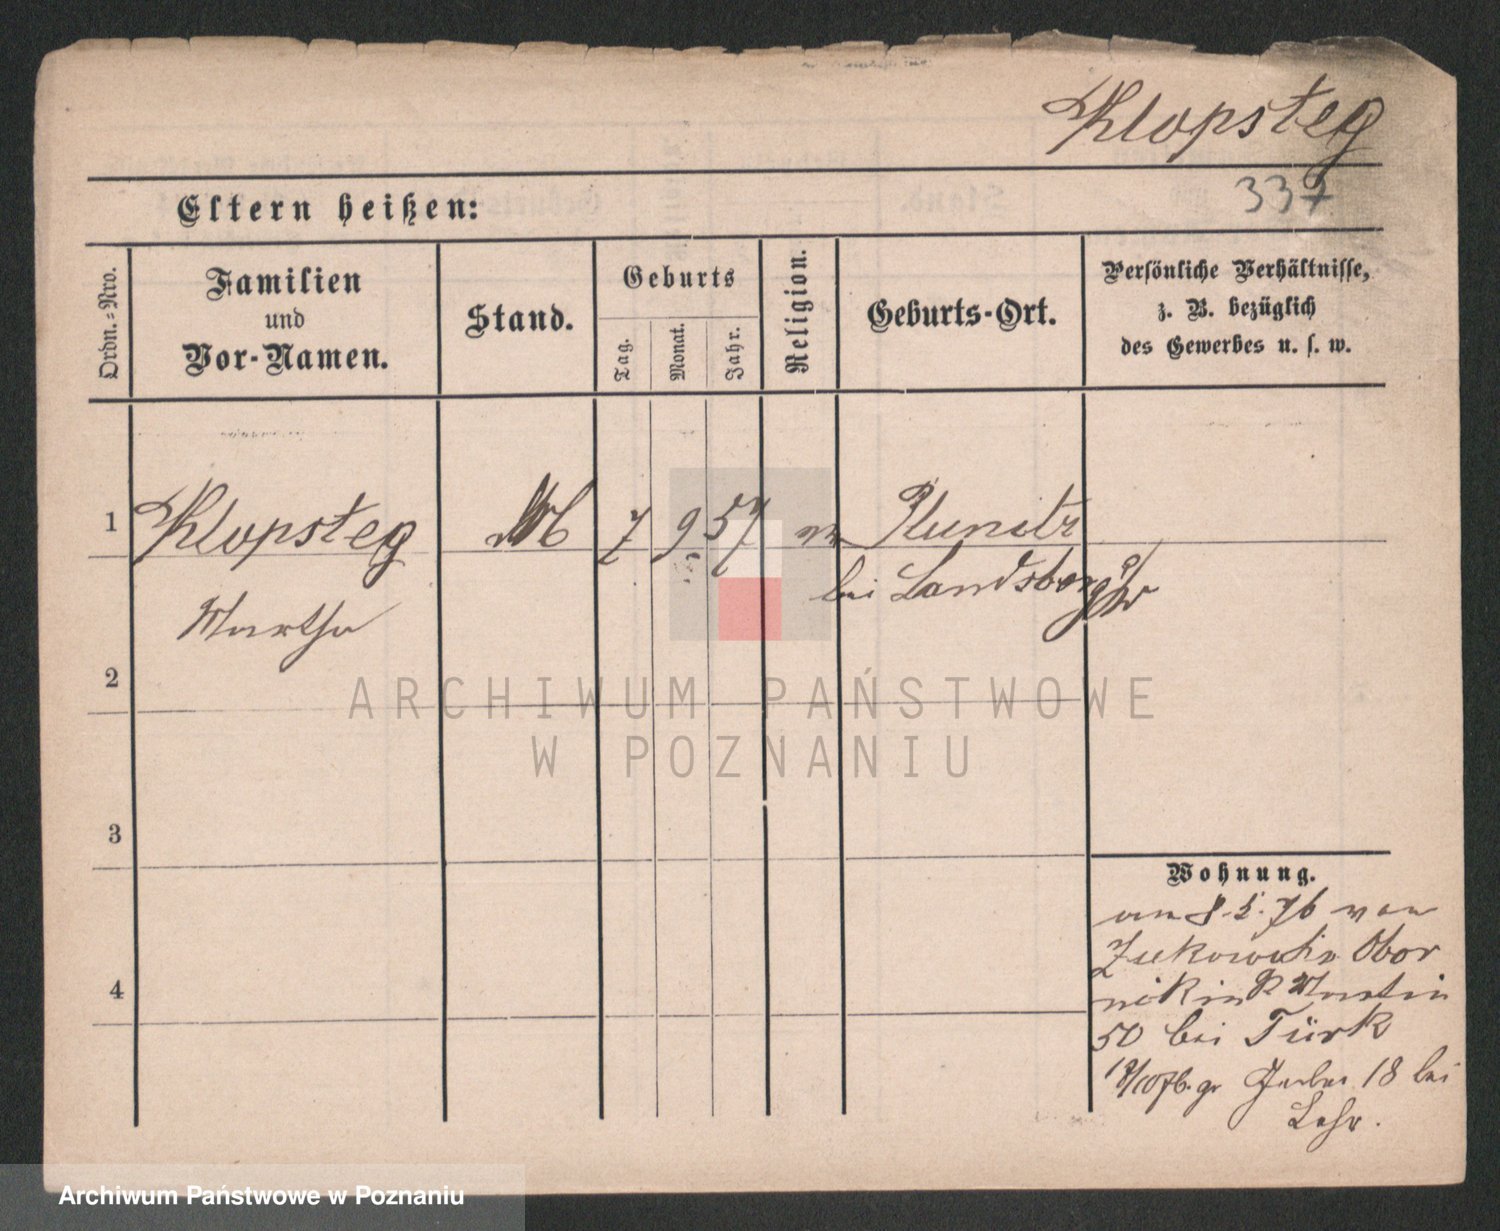 Klopsteg
337
Eltern heißen:
Ordn.-Nro.
Familien
und
Vor-Namen.
Stand.
Geburts
Tag.
Monat.
Jahr.
Religion.
Geburts-Ort.
Persönliche Verhältnisse,
z. B. bezüglich
des Gewerbes u. s. w.
1 Klopsteg 7 9 57
bei Landsberg
Martha
2
ARCHIWUM PAŃSTWOWE
W POZNANIU
3
4
Wohnung.
am 8.5.76 von
Obor
nik in Martin
50 bei Türk
18/10 76. gr Gerber 18 bei
Lehr.
Archiwum Państwowe w Poznaniu